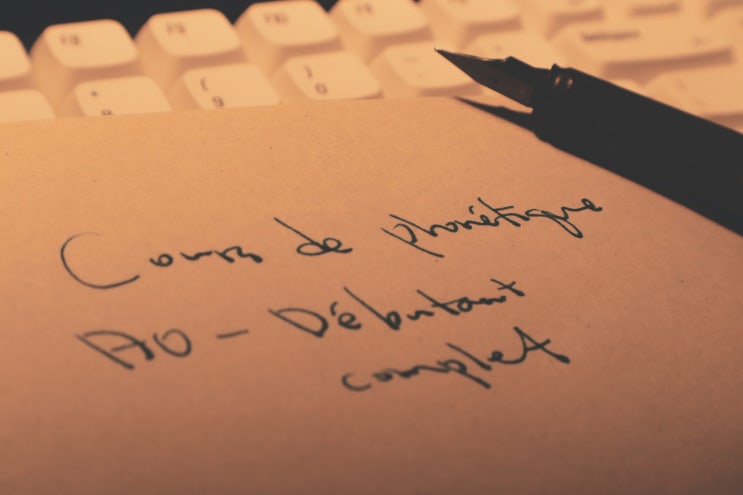 F8
F9
F10
* 8
( 9
) 0
Cours de phonétique
A0 - Débutant
complet